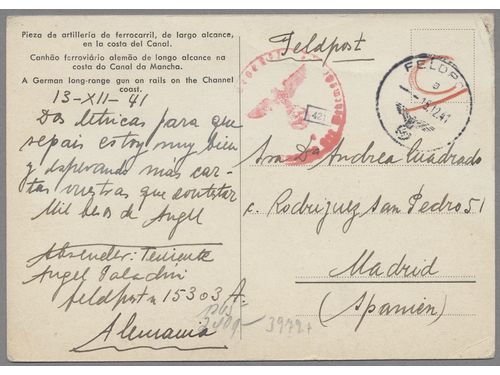 Pieza de artillería de ferrocarril, de largo alcance,
en la costa del Canal.
Canhão ferroviário alemão de longo alcance na
costa do Canal da Mancha.
A German long-range gun on rails on the Channel
coast.
13-XII-41
Dos letricas para que
sepais estoy muy bien
y esperando mas car-
tas vuestras que contestar
Mil besos de Angel
Absender: Teniente
Angel
Feldpost n 15303 A.
Alemania
Feldpost
FELDPO
a
15.12.41
421
Sra Dª Andrea Cuadrado
c. Rodriguez San Pedro 51
Madrid
(Spanien)